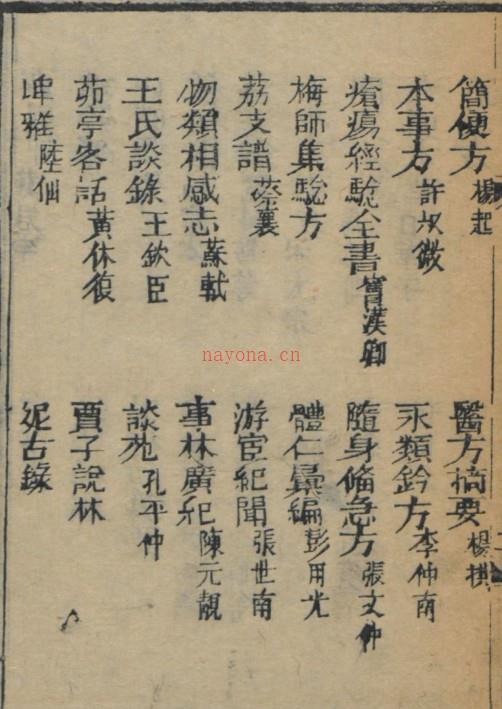 簡便方 楊起 醫方摘要 楊拱
本事方 許叔微 永類鈐方 李仲南
瘡瘍經騐全書 竇漢卿 隨身備急方 張文仲
梅師集騐方 體仁彙編 彭用光
荔支譜 蔡襄 游宦紀聞 張世南
物類相感志 蘇軾 事林廣紀 陳元靚
王氏談錄 王欽臣 談苑 孔平仲
茆亭客話 黃休復 賈子說林
埤雅 陸佃 妮古錄
nayona.cn